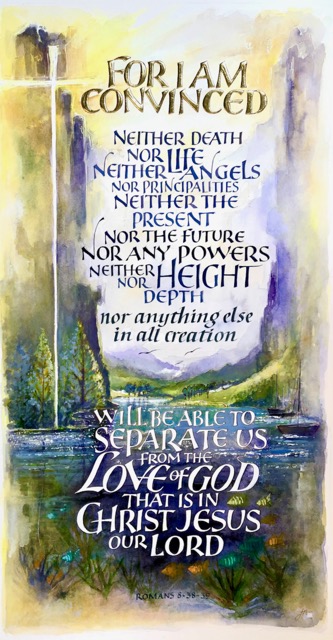 FOR I AM
CONVINCED
NEITHER DEATH
NOR LIFE
NEITHER ANGELS
NOR PRINCIPALITIES
NEITHER THE
PRESENT
NOR THE FUTURE
NOR ANY POWERS
NEITHER HEIGHT
NOR
DEPTH
nor anything else
in all creation
WILL BE ABLE TO
SEPARATE US
FROM THE
LOVE OF GOD
THAT IS IN
CHRIST JESUS
OUR LORD
ROMANS 8·38-39